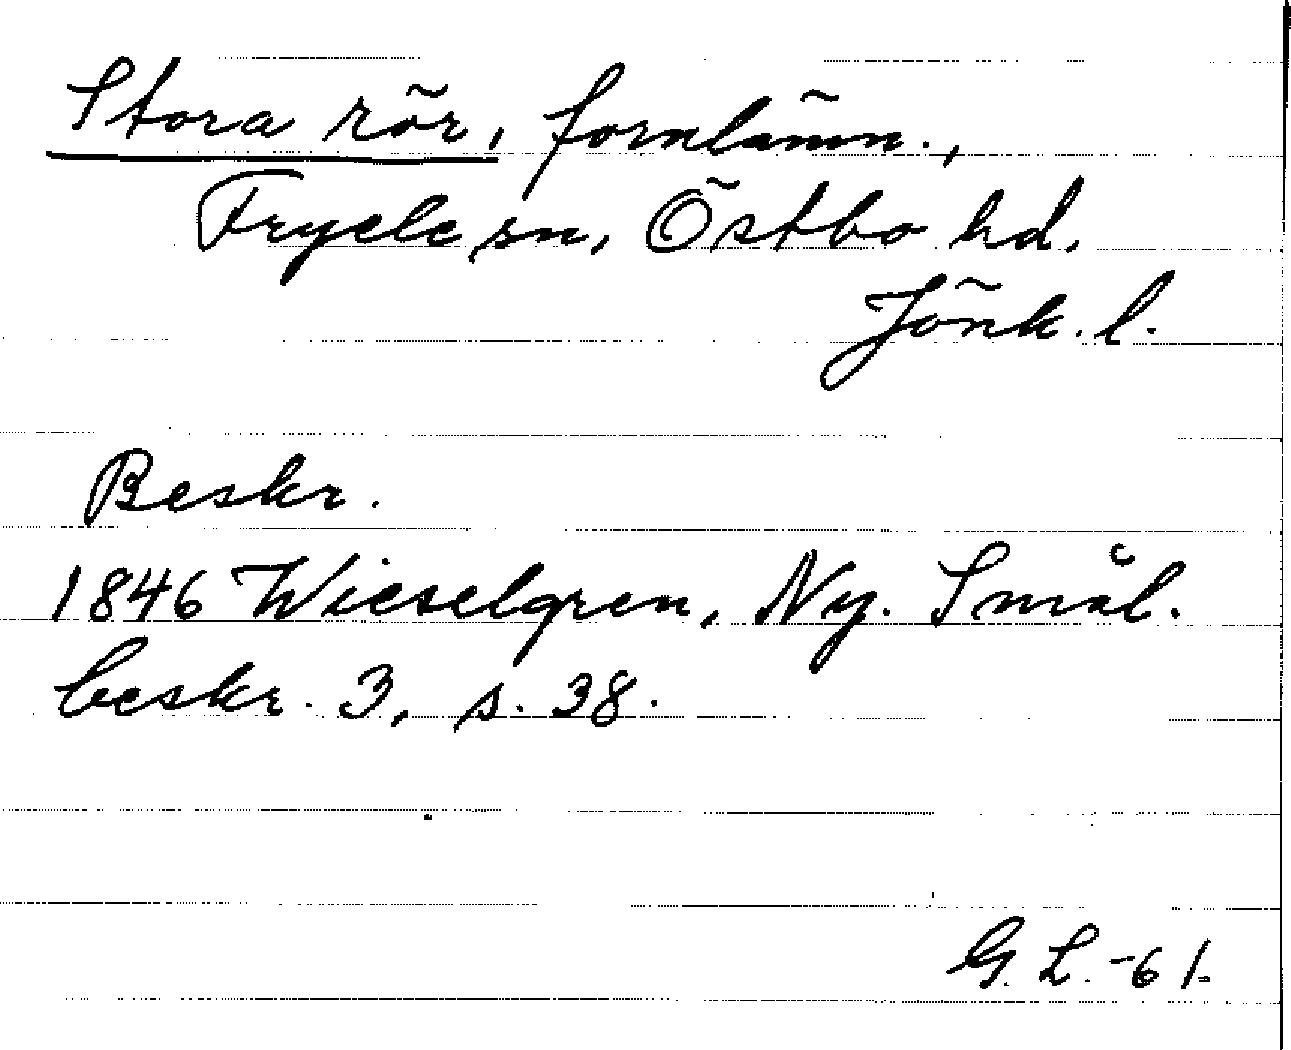 Stora rör, fornlämn.,
Fryele sn, Östbo hd.
Jönk. l.
Beskr.
1846 Wieselgren, Ny. Smål.
beskr. 3, s. 38.
G. L. -61.